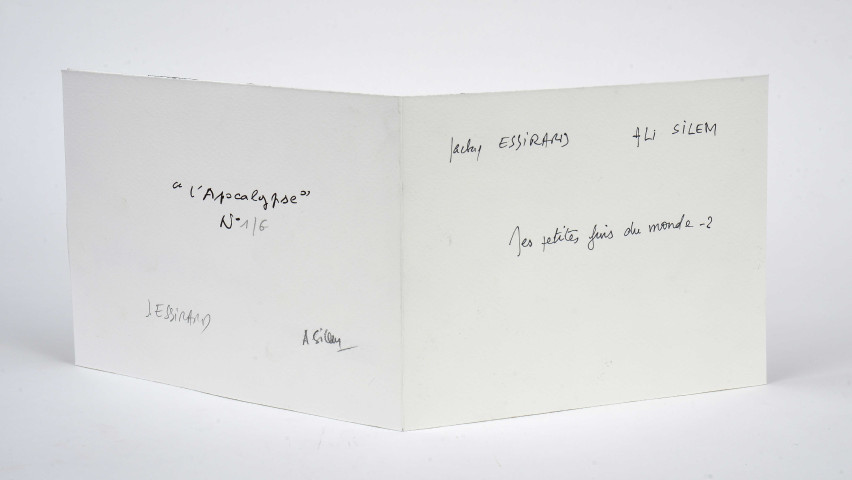 “ l'Apocalypse ”
N° 1/6
J. ESSIRARD
A Silem
Jacky ESSIRARD ALI SILEM
Les petites fins du monde - 2